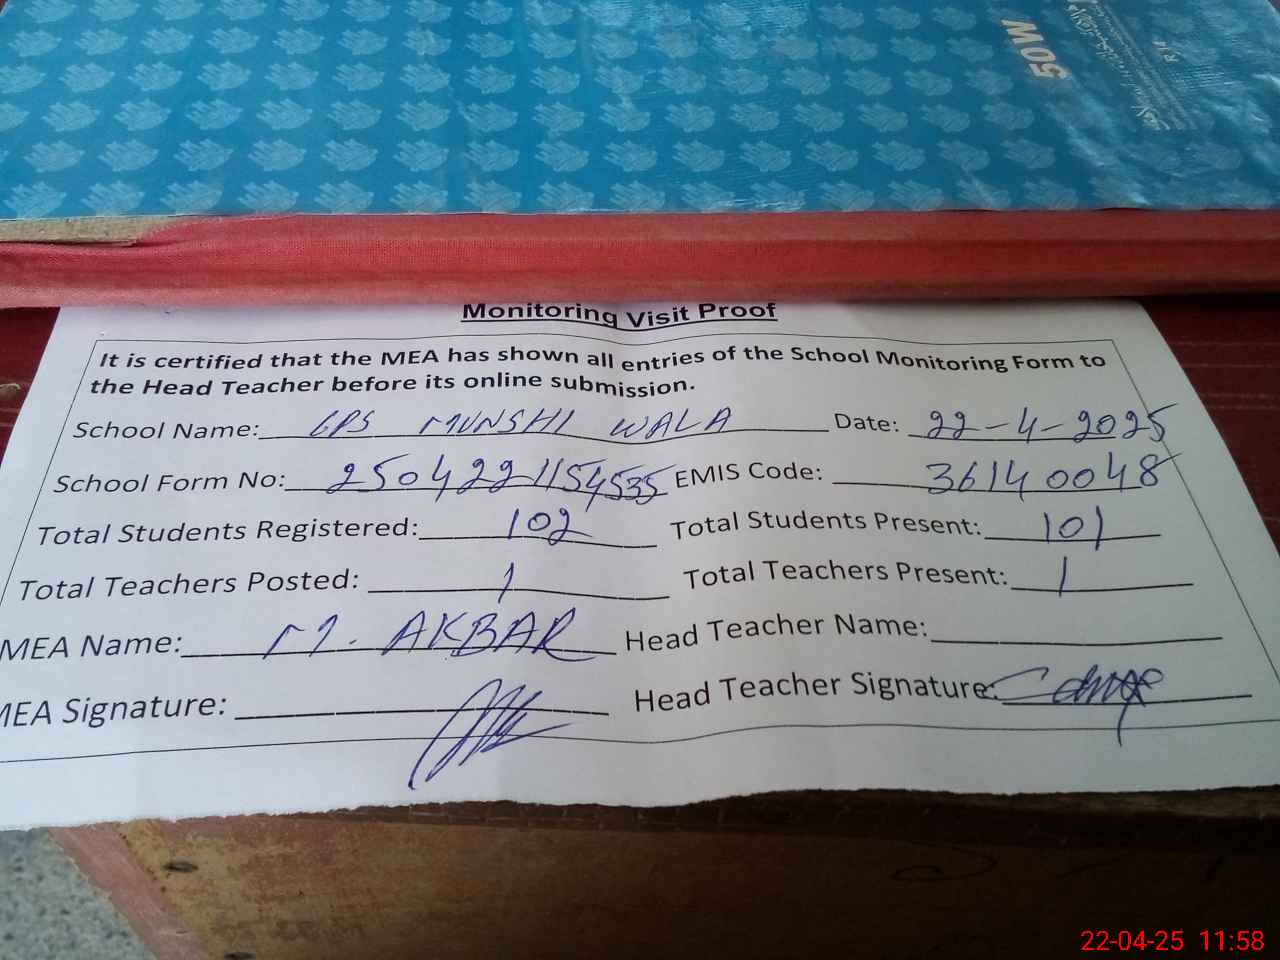 50W
Monitoring Visit Proof
It is certified that the MEA has shown all entries of the School Monitoring Form to
the Head Teacher before its online submission.
School Name: GPS MUNSHI WALA Date: 22-4-2025
School Form No: 2504221154535 EMIS Code: 36140048
Total Students Registered: 102 Total Students Present: 101
Total Teachers Posted: 1 Total Teachers Present: 1
MEA Name: M. AKBAR Head Teacher Name:
MEA Signature: Head Teacher Signature:
22-04-25 11:58